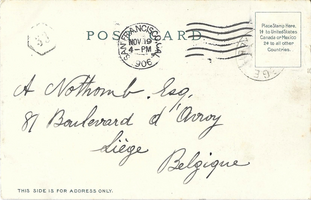 POST CARD.
SAN FRANCISCO, CAL.
NOV 19
4-PM
1906
Place Stamp Here,
1¢ to United States
Canada or Mexico
2¢ to all other
Countries.
A Nothomb Esq.
81 Boulevard d'Avroy
Liège
Belgique
THIS SIDE IS FOR ADDRESS ONLY.